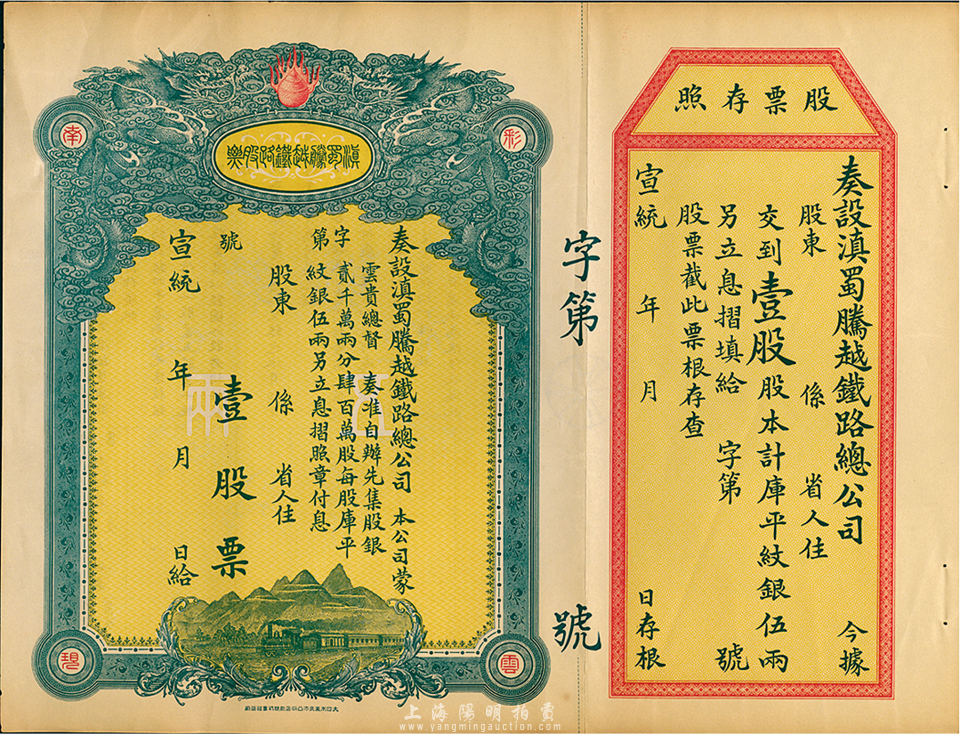 股票存照
奏設滇蜀騰越鐵路總公司 今據
股東 係 省人住
交到壹股股本計庫平紋銀伍兩
另立息摺填給 字第 號
股票截此票根存查
宣統 年 月 日存根
字第 號
滇蜀騰越鐵路股票
彩
南
雲
奏設滇蜀騰越鐵路總公司 本公司蒙
雲貴總督 奏准自辦先集股銀
貳千萬兩分肆百萬股每股庫平
紋銀伍兩另立息摺照章付息
字第
股東 係 省人住
號
壹股票
宣統 年 月 日給
伍兩
上海陽明拍賣
www.yangmingauction.com